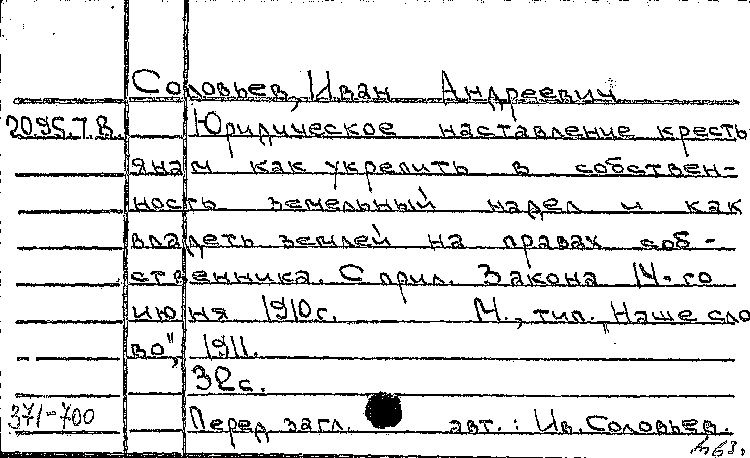 Соловьев, Иван Андреевич
2095.7.В. Юридическое наставление кресть
янам как укрепить в собствен-
ность земельный надел и как
владеть землей на правах соб-
ственника. С прил. Закона 14-го
июня 1910г. М., тип. „Наше сло
во", 1911.
32с.
371-700 Перед загл. авт.: Ив. Соловьев.